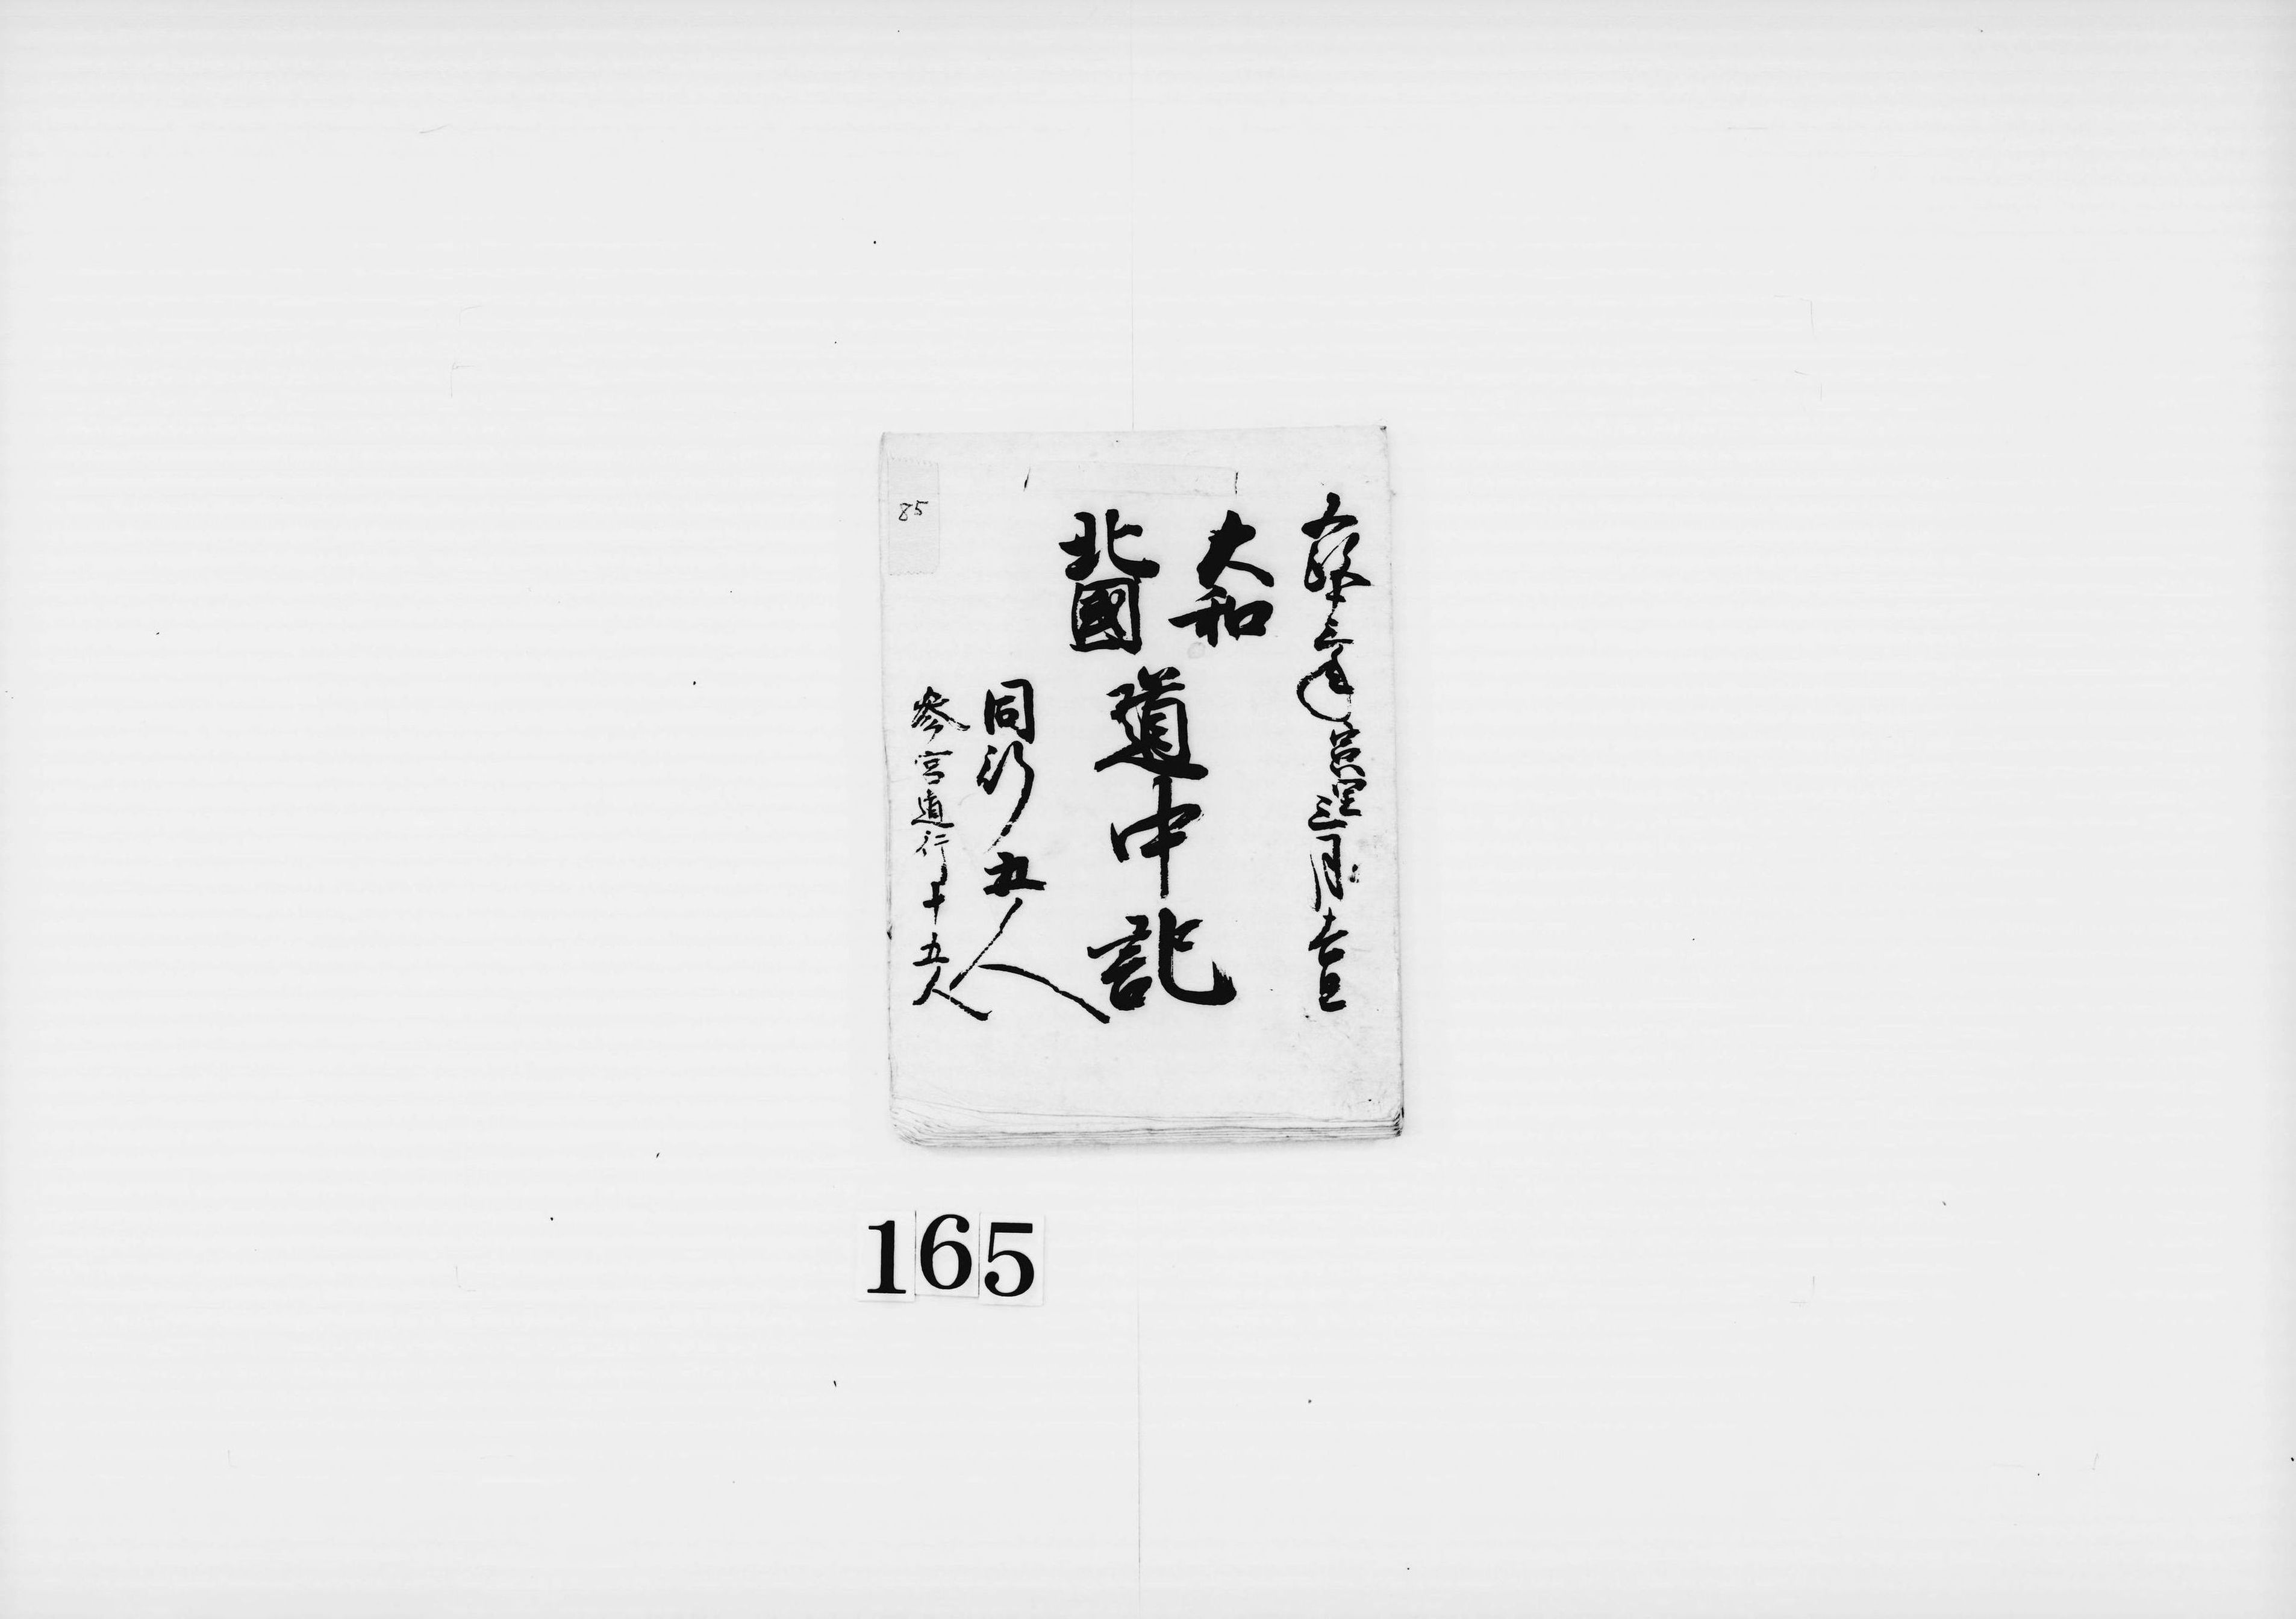 三年三月吉日
大和
北國
道中記
同行五人
參宮道行十五人
85
165